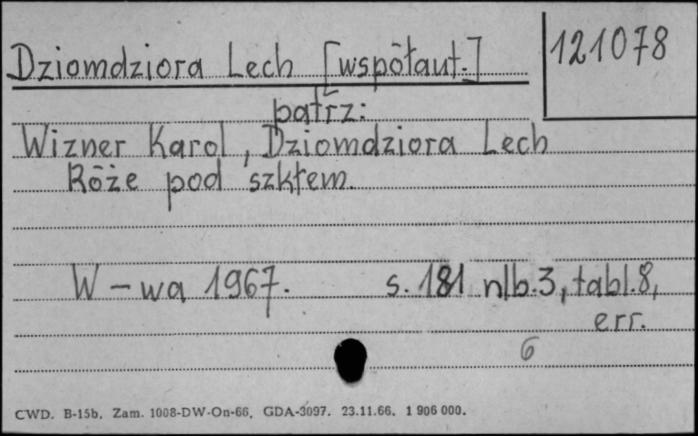 Dziomdziora Lech [współaut.]
121078
patrz:
Wizner Karol, Dziomdziora Lech
Róże pod szkłem.
W-wa 1967. s. 181 nlb.3, tabl.8,
err.
6
CWD. B-15b. Zam. 1008-DW-On-66. GDA-3097. 23.11.66. 1 906 000.